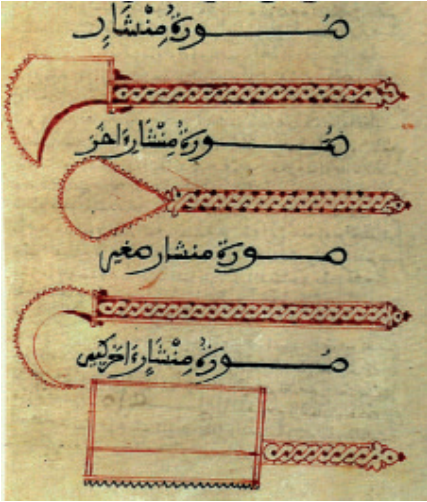 صورة مِنْشَارٍ
صورة مِنْشَارٍ اخر
صورة منشار صغير
صورة مِنْشَارٍ اخر كبير